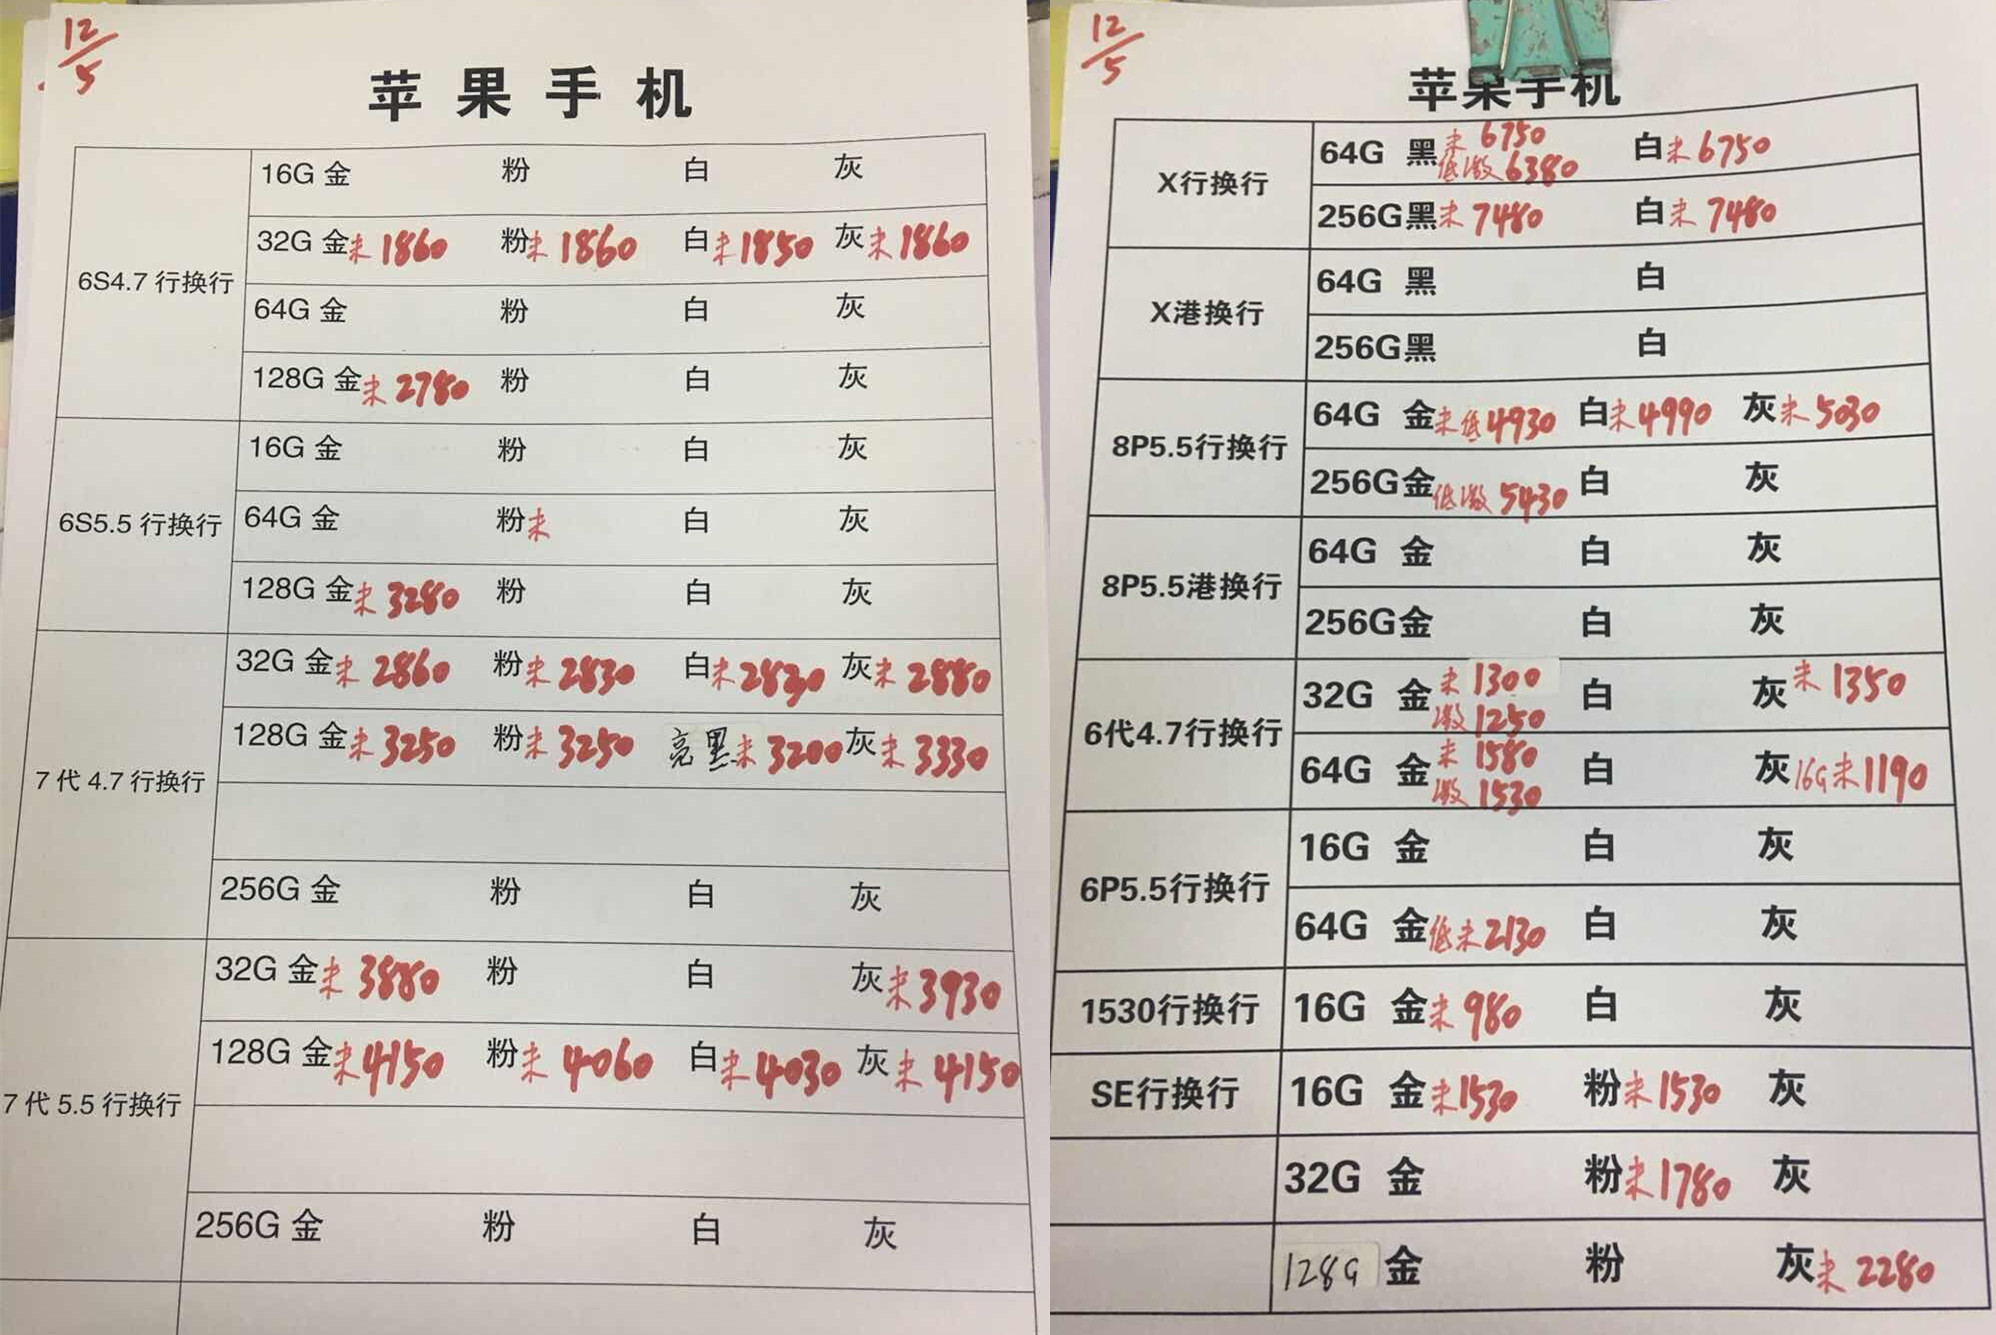 12/5
苹果手机
6S4.7行换行
16G 金 粉 白 灰
32G 金未1860 粉未1860 白未1850 灰未1860
64G 金 粉 白 灰
128G 金未2780 粉 白 灰
6S5.5行换行
16G 金 粉 白 灰
64G 金 粉未 白 灰
128G 金未3280 粉 白 灰
7代4.7行换行
32G 金未2860 粉未2830 白未2830 灰未2880
128G 金未3250 粉未3250 亮黑未3200 灰未3330
256G 金 粉 白 灰
7代5.5行换行
32G 金未3880 粉 白 灰未3930
128G 金未4150 粉未4060 白未4030 灰未4150
256G 金 粉 白 灰
12/5
苹果手机
X行换行
64G 黑未6750 白未6750
低激6380
256G黑未7480 白未7480
X港换行
64G 黑 白
256G黑 白
8P5.5行换行
64G 金未低4930 白未4990 灰未5030
256G金低激5430 白 灰
8P5.5港换行
64G 金 白 灰
256G金 白 灰
6代4.7行换行
32G 金未1300 白 灰未1350
激1250
64G 金未1580 白 灰16G未1190
激1530
6P5.5行换行
16G 金 白 灰
64G 金低未2130 白 灰
1530行换行
16G 金未980 白 灰
SE行换行
16G 金未1530 粉未1530 灰
32G 金 粉未1780 灰
128G 金 粉 灰未2280